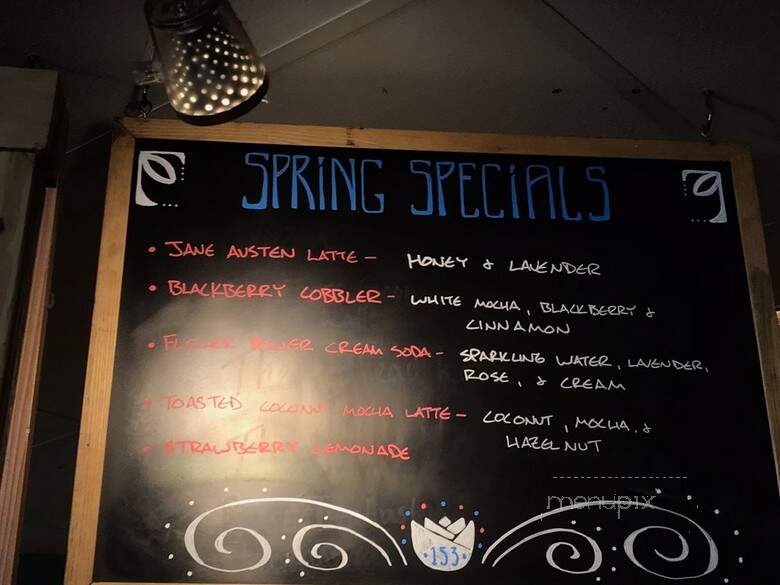 SPRING SPECIALS
• JANE AUSTEN LATTE – HONEY & LAVENDER
• BLACKBERRY COBBLER – WHITE MOCHA, BLACKBERRY &
CINNAMON
• FLOWER POWER CREAM SODA – SPARKLING WATER, LAVENDER,
ROSE, & CREAM
• TOASTED COCONUT MOCHA LATTE – COCONUT, MOCHA, &
HAZELNUT
• STRAWBERRY LEMONADE
menupix
·153·